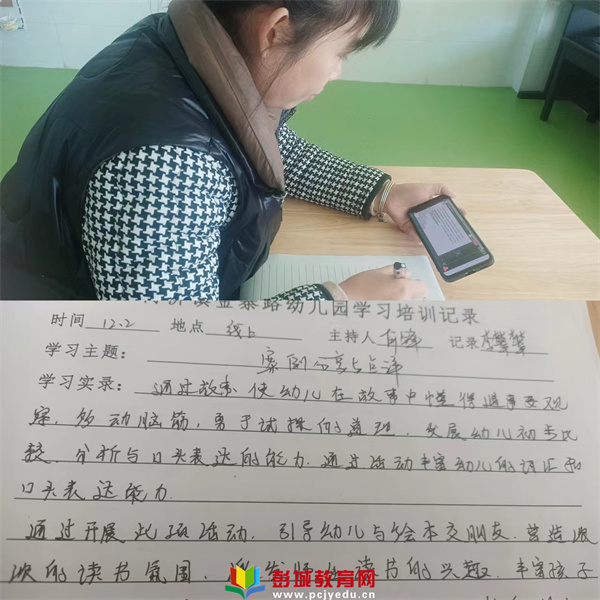 金泰路幼儿园学习培训记录
时间 12.2 地点 线上 主持人 记录 李攀攀
学习主题: 案例分享与点评
学习实录: 通过故事使幼儿在故事中懂得遇事要观
察,多动脑筋,勇于试探的道理,发展幼儿初步比
较、分析与口头表达的能力.通过活动丰富幼儿的词汇和
口头表达能力.
通过开展此项活动,引导幼儿与绘本交朋友.营造浓
浓的读书氛围,激发 读书的兴趣.丰富孩子
彭城教育网
www.pcjyedu.cn